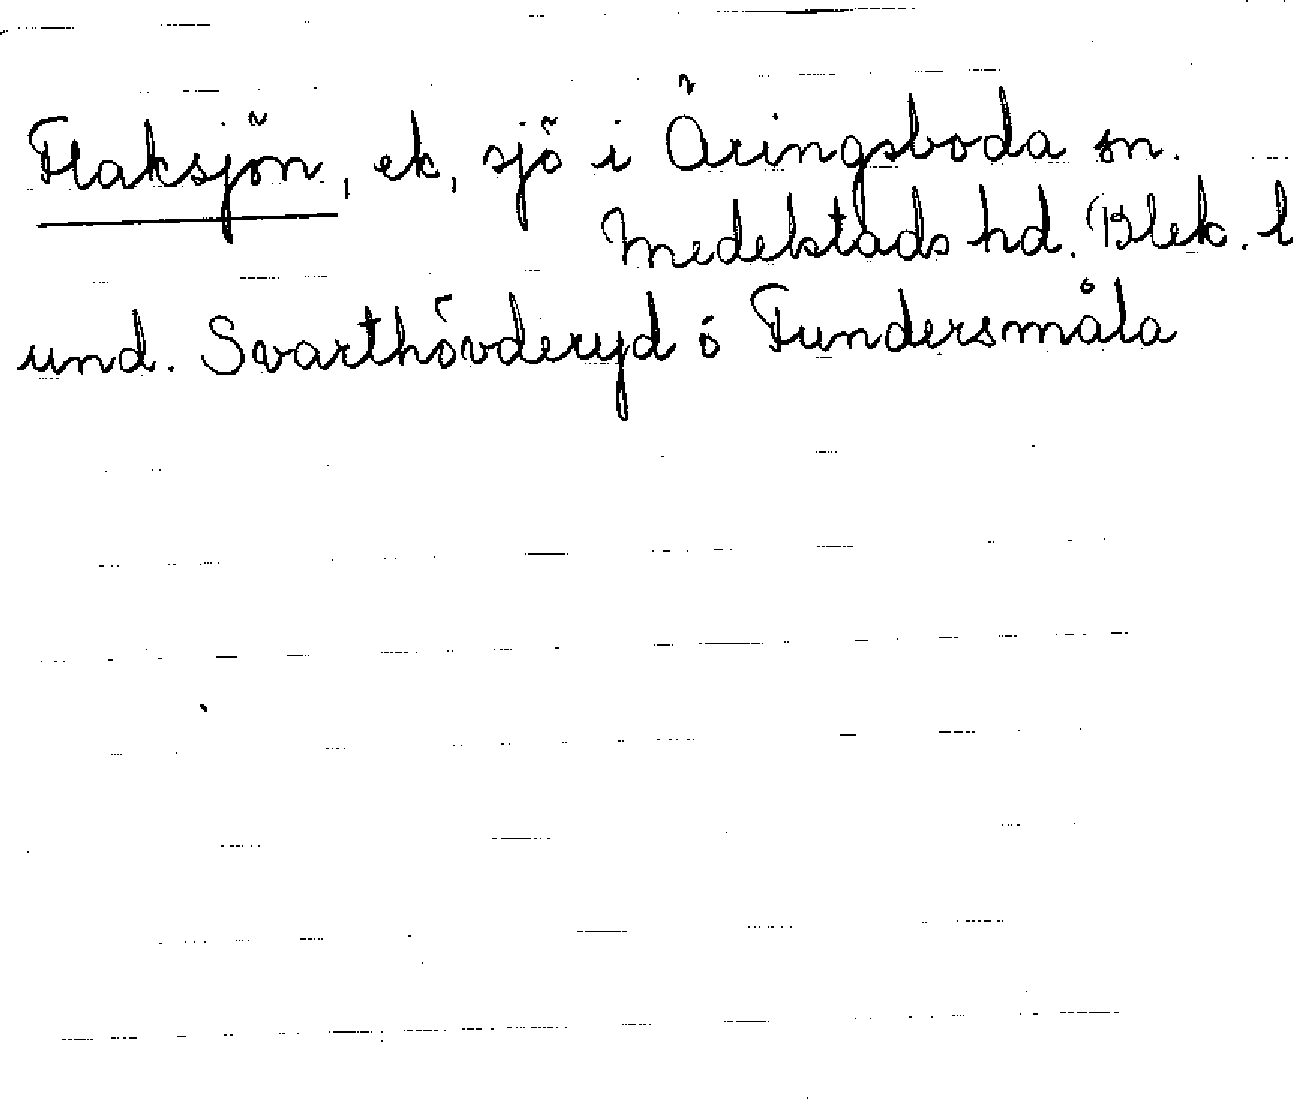 Flaksjön, ek, sjö i Öringsboda sn.
Medelstads hd. Blek. l
und. Svarthövderyd ö Fundersmåla